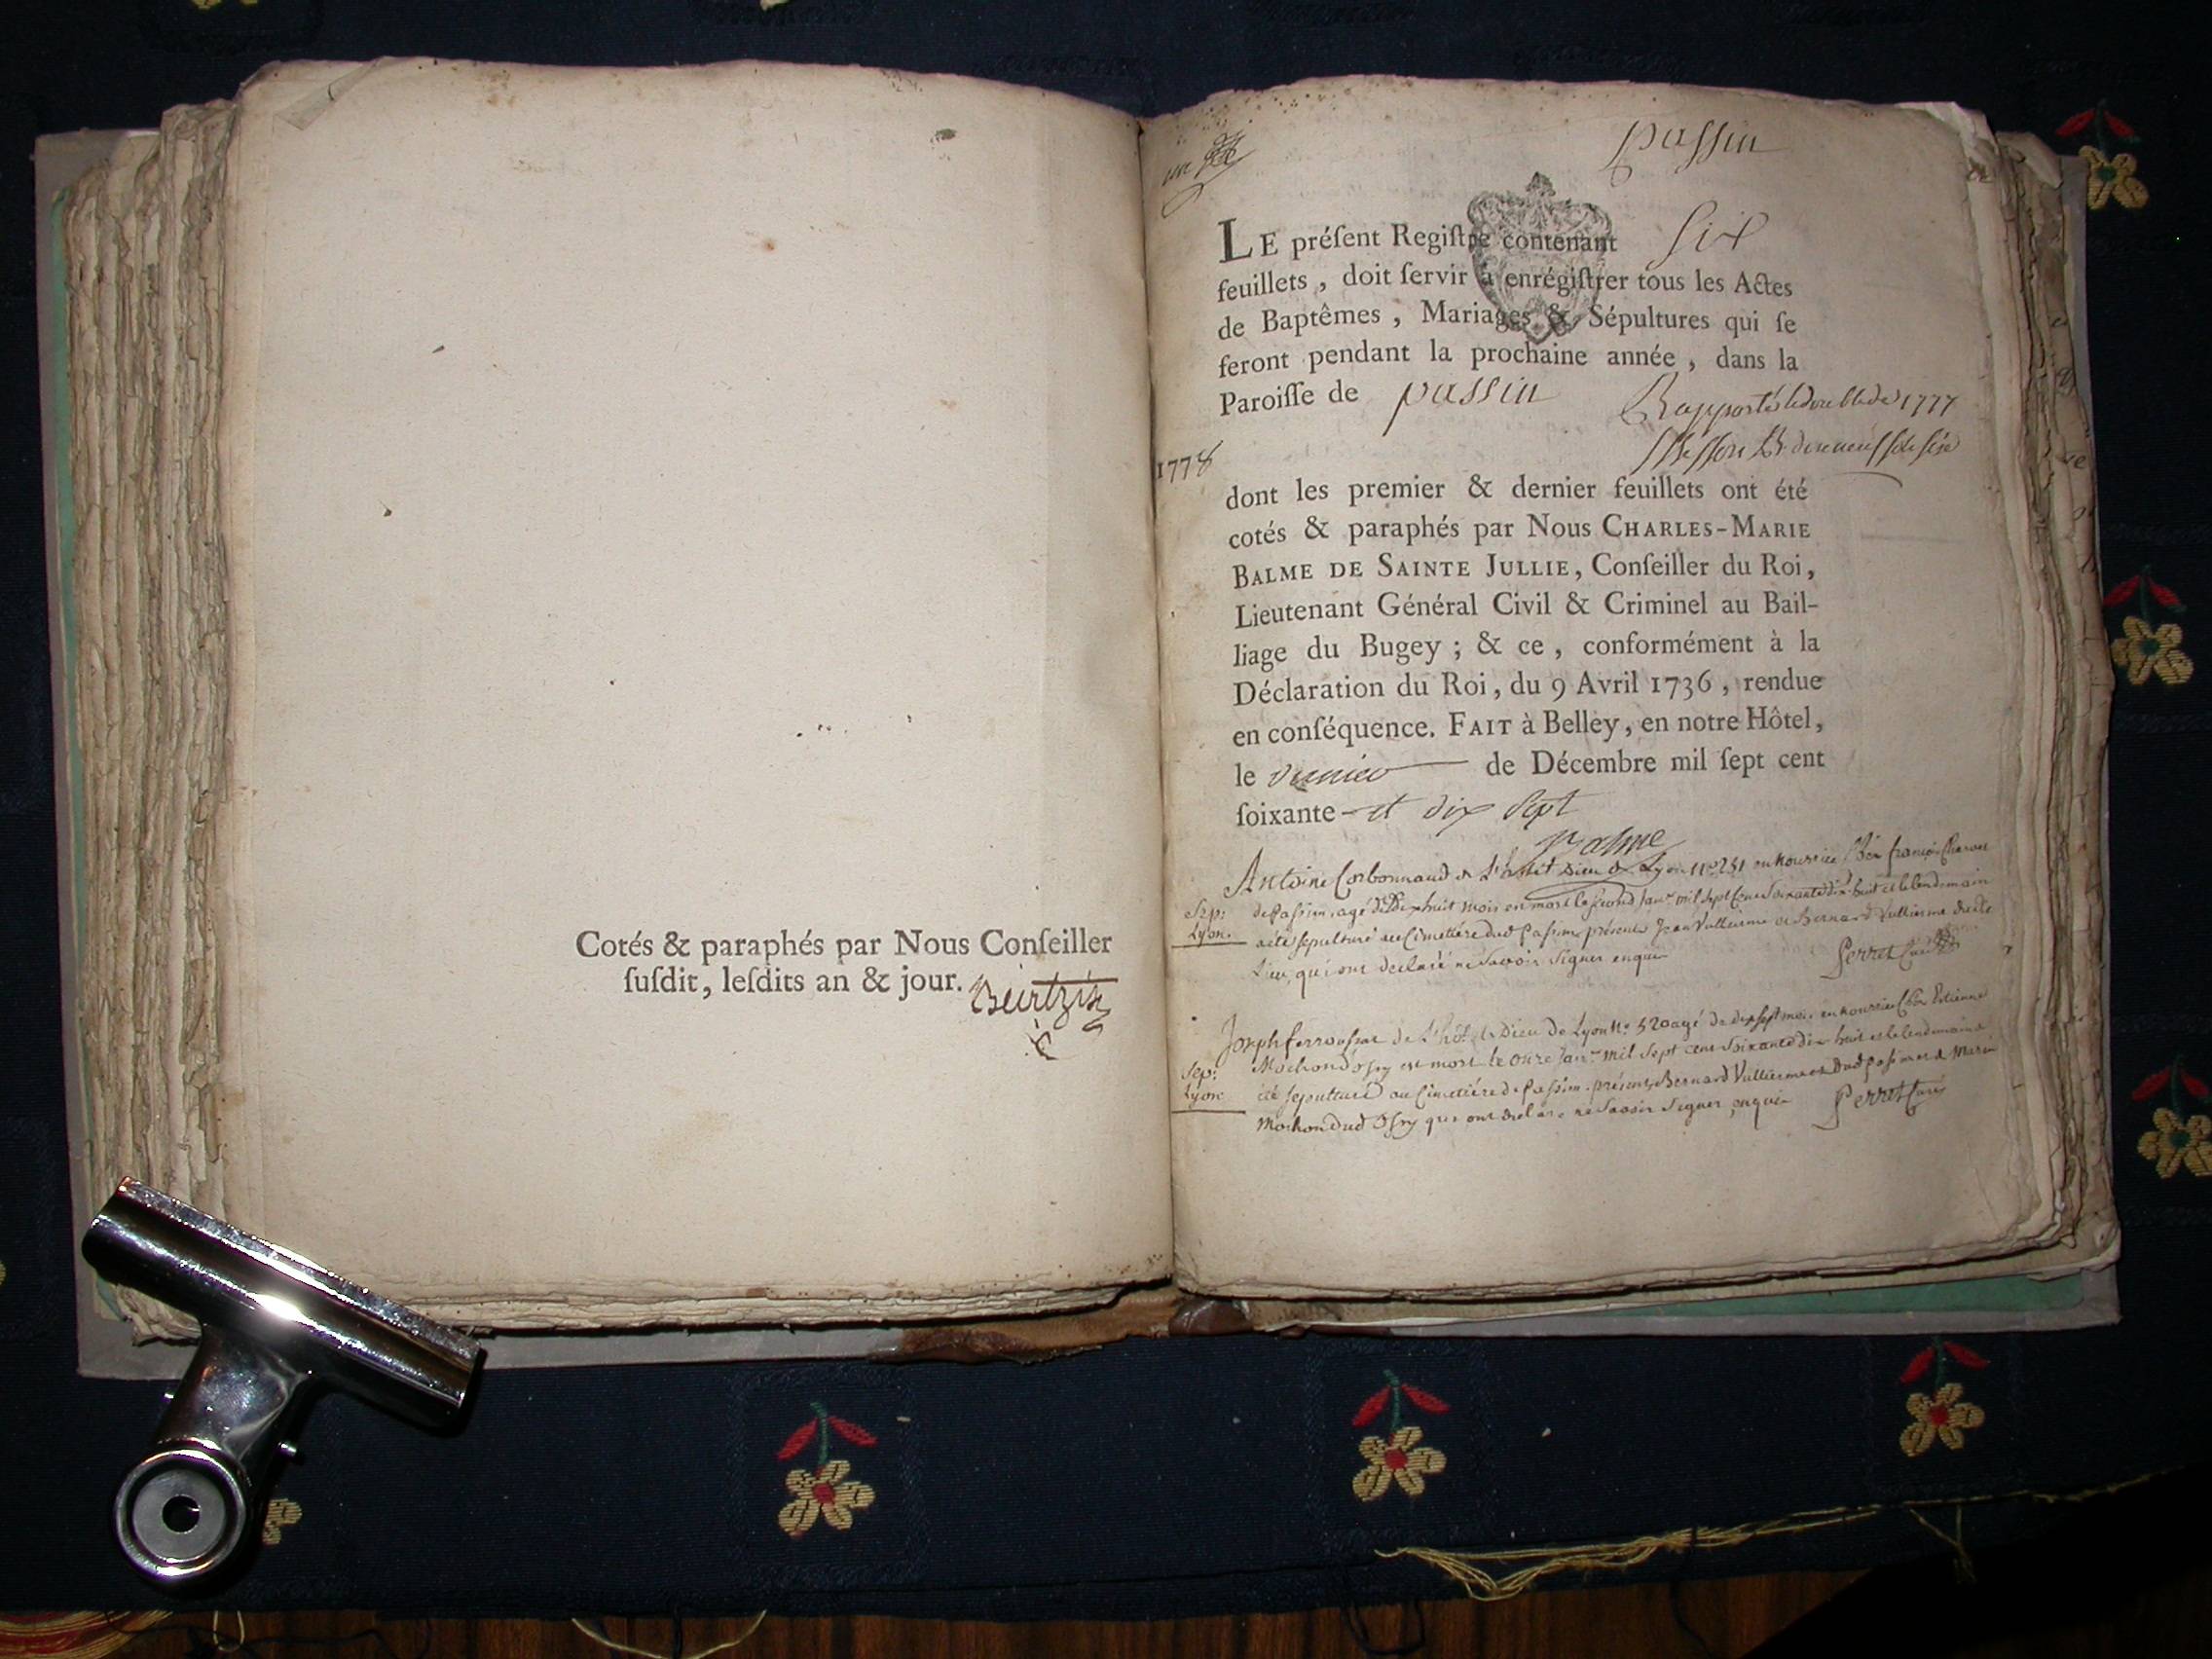 Cotés & paraphés par Nous Conſeiller
ſuſdit, leſdits an & jour.
un
passin
LE préſent Regiſtre contenant six
feuillets, doit ſervir à enrégiſtrer tous les Actes
de Baptêmes, Mariages & Sépultures qui ſe
feront pendant la prochaine année, dans la
Paroiſſe de passin
Rapporté le double de 1777
1778
dont les premier & dernier feuillets ont été
cotés & paraphés par Nous CHARLES-MARIE
BALME DE SAINTE JULLIE, Conſeiller du Roi,
Lieutenant Général Civil & Criminel au Bail-
liage du Bugey; & ce, conformément à la
Déclaration du Roi, du 9 Avril 1736, rendue
en conſéquence. FAIT à Belley, en notre Hôtel,
le dernier de Décembre mil ſept cent
ſoixante et dix sept
Balme
Antoine Corbonnaud de L'hotel Dieu de Lyon n° 251 en nourrice chez françois
Sep: de Passin, agé de Dix huit mois est mort le second janr mil sept cent soixante dix huit et le lendemain
Lyon. a été sepulturé au Cimetière dud Passin, présents Jean Vulliermе et Bernard Vulliermе
Lieu, qui ont declaré ne Savoir Signer enquis Perret Curé
Joseph ferrousat de L'hôtel Dieu de Lyon n° 520 agé de dix sept mois en nourrice chez Etienne
Sep: Mochon d'ossy est mort le onze janr mil sept cent soixante dix huit et le lendemain a
Lyon été sepulturé au Cimetière de Passin. présents Bernard Vulliermе dud passin et
Mochon dud Ossy qui ont declaré ne Savoir Signer enquis Perret Curé